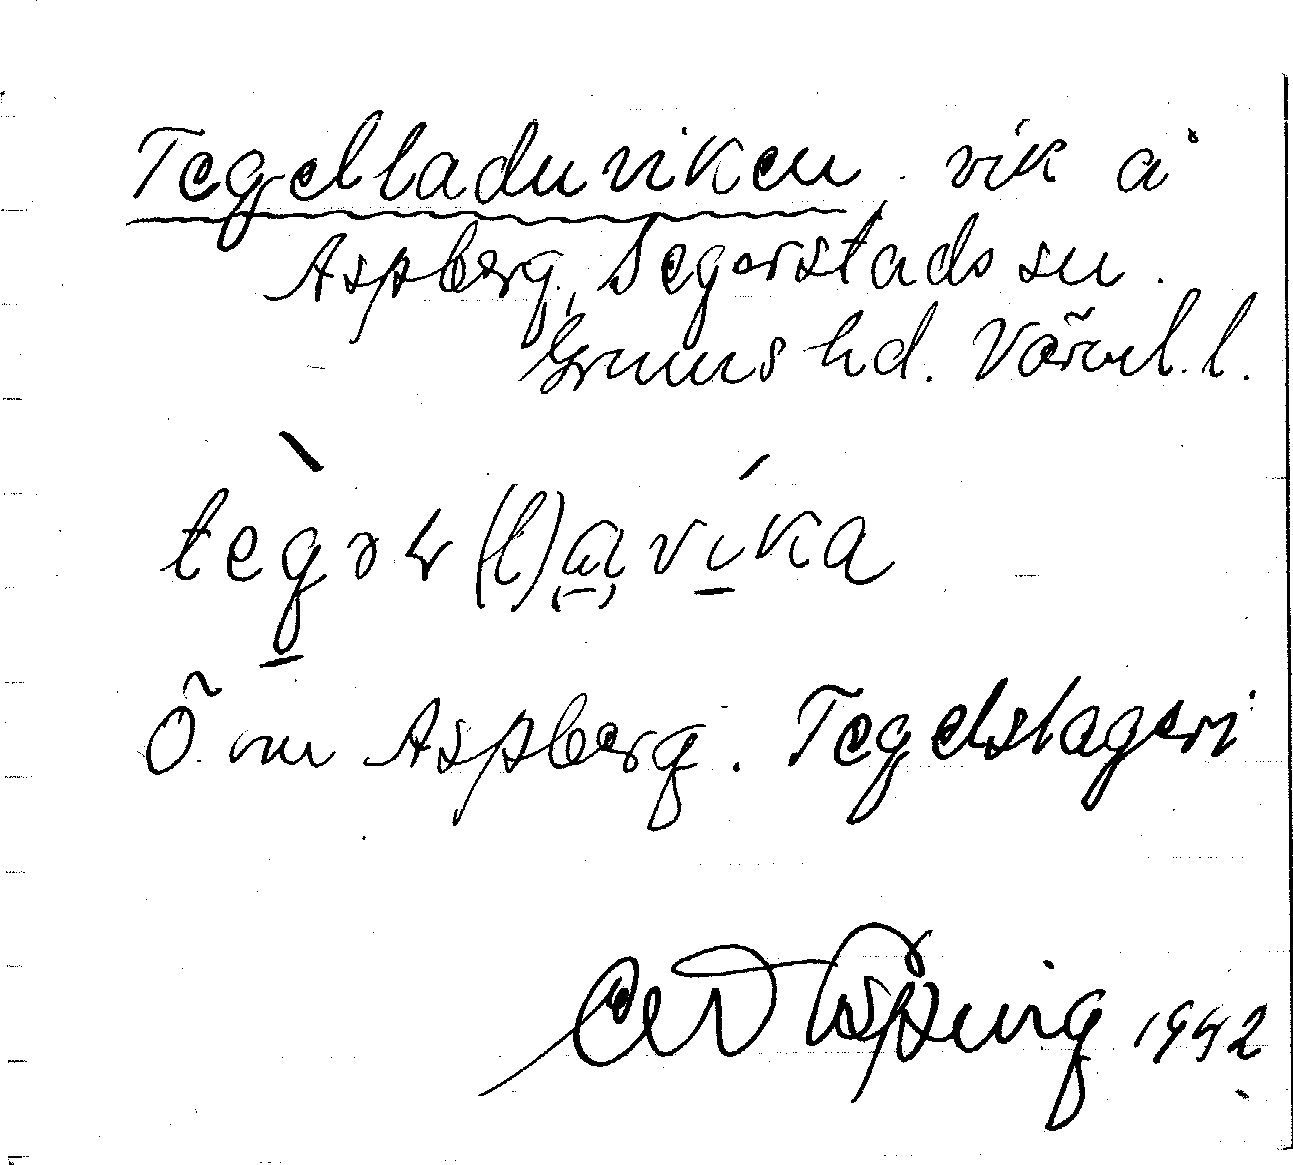 Tegelladuviken. vik å
Aspberg, Segerstads sn.
Grums hd. Värml. l.
tegəɫ(l)a vika
Ö. om Aspberg. Tegelslageri
1942